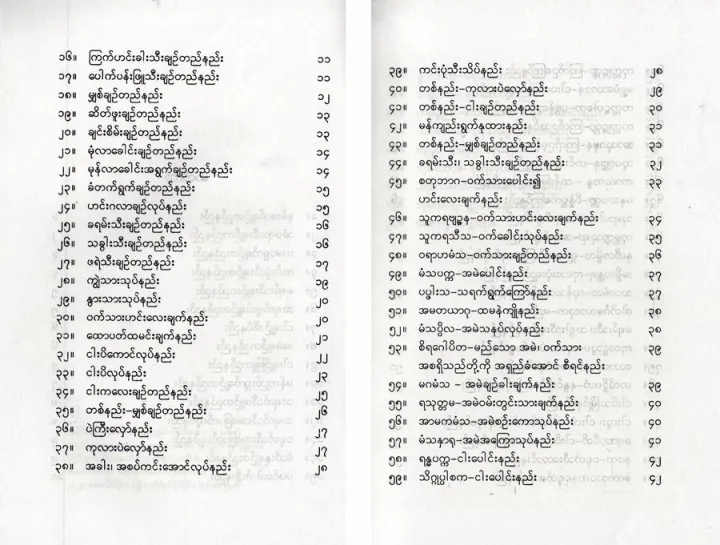 ၁၆။ ကြက်ဟင်းခါးသီးချဉ်တည်နည်း ၁၁
၁၇။ ပေါက်ပန်းဖြူသီးချဉ်တည်နည်း ၁၁
၁၈။ မျှစ်ချဉ်တည်နည်း ၁၂
၁၉။ ဆိတ်ဖူးချဉ်တည်နည်း ၁၃
၂၀။ ချင်းစိမ်းချဉ်တည်နည်း ၁၃
၂၁။ မုံလာခေါင်းချဉ်တည်နည်း ၁၄
၂၂။ မုန်လာခေါင်းအရွက်ချဉ်တည်နည်း ၁၄
၂၃။ ခံတက်ရွက်ချဉ်တည်နည်း ၁၅
၂၄။ ဟင်းဂလာချဉ်လုပ်နည်း ၁၅
၂၅။ ခရမ်းသီးချဉ်တည်နည်း ၁၆
၂၆။ သခွါးသီးချဉ်တည်နည်း ၁၆
၂၇။ ဖရဲသီးချဉ်တည်နည်း ၁၇
၂၈။ ကျွဲသားသုပ်နည်း ၁၉
၂၉။ နွားသားသုပ်နည်း ၂၀
၃၀။ ဝက်သားဟင်းလေးချက်နည်း ၂၀
၃၁။ ထောပတ်ထမင်းချက်နည်း ၂၁
၃၂။ ငါးပိကောင်လုပ်နည်း ၂၂
၃၃။ ငါးပိလုပ်နည်း ၂၃
၃၄။ ငါးကလေးချဉ်တည်နည်း ၂၅
၃၅။ တစ်နည်း-မျှစ်ချဉ်တည်နည်း ၂၆
၃၆။ ပဲကြီးလှော်နည်း ၂၇
၃၇။ ကုလားပဲလှော်နည်း ၂၇
၃၈။ အခါး၊ အစပ်ကင်းအောင်လုပ်နည်း ၂၈
၃၉။ ကင်းပုံသီးသိပ်နည်း ၂၈
၄၀။ တစ်နည်း-ကုလားပဲလှော်နည်း ၂၉
၄၁။ တစ်နည်း-ငါးချဉ်တည်နည်း ၃၀
၄၂။ မန်ကျည်းရွက်နုထားနည်း ၃၁
၄၃။ တစ်နည်း-မျှစ်ချဉ်တည်နည်း ၃၁
၄၄။ ခရမ်းသီး၊ သခွါးသီးချဉ်တည်နည်း ၃၂
၄၅။ စတုဘာဂ-ဝက်သားပေါင်း၍ ၃၃
ဟင်းလေးချက်နည်း
၄၆။ သူကရဗျဉ္ဇန-ဝက်သားဟင်းလေးချက်နည်း ၃၄
၄၇။ သူကရသီသ-ဝက်ခေါင်းသုပ်နည်း ၃၅
၄၈။ ဝရာဟမံသ-ဝက်သားချဉ်တည်နည်း ၃၆
၄၉။ မံသပက္က-အမဲပေါင်းနည်း ၃၇
၅၀။ ပပ္ဖါးသ-သရက်ရွက်ကြော်နည်း ၃၇
၅၁။ အမတယာဂု-ထမနဲကျိုနည်း ၃၈
၅၂။ မံသပိလ-အမဲသနပ်လုပ်နည်း ၃၈
၅၃။ စိရဂေါပိတ-မည်သော အမဲ၊ ဝက်သား ၃၉
အစရှိသည်တို့ကို အရှည်ခံအောင် စီရင်နည်း
၅၄။ မဂမံသ - အမဲချဉ်ခါးချက်နည်း ၃၉
၅၅။ ရသုတ္တမ-အမဲဝမ်းတွင်းသားချက်နည်း ၄၀
၅၆။ အာမကမံသ-အမဲစဉ်းကောသုပ်နည်း ၄၀
၅၇။ မံသနာရု-အမဲအကြောသုပ်နည်း ၄၁
၅၈။ ရန္ဓပက္က-ငါးပေါင်းနည်း ၄၂
၅၉။ သိဂ္ဂုပ္ပါစက-ငါးပေါင်းနည်း ၄၂